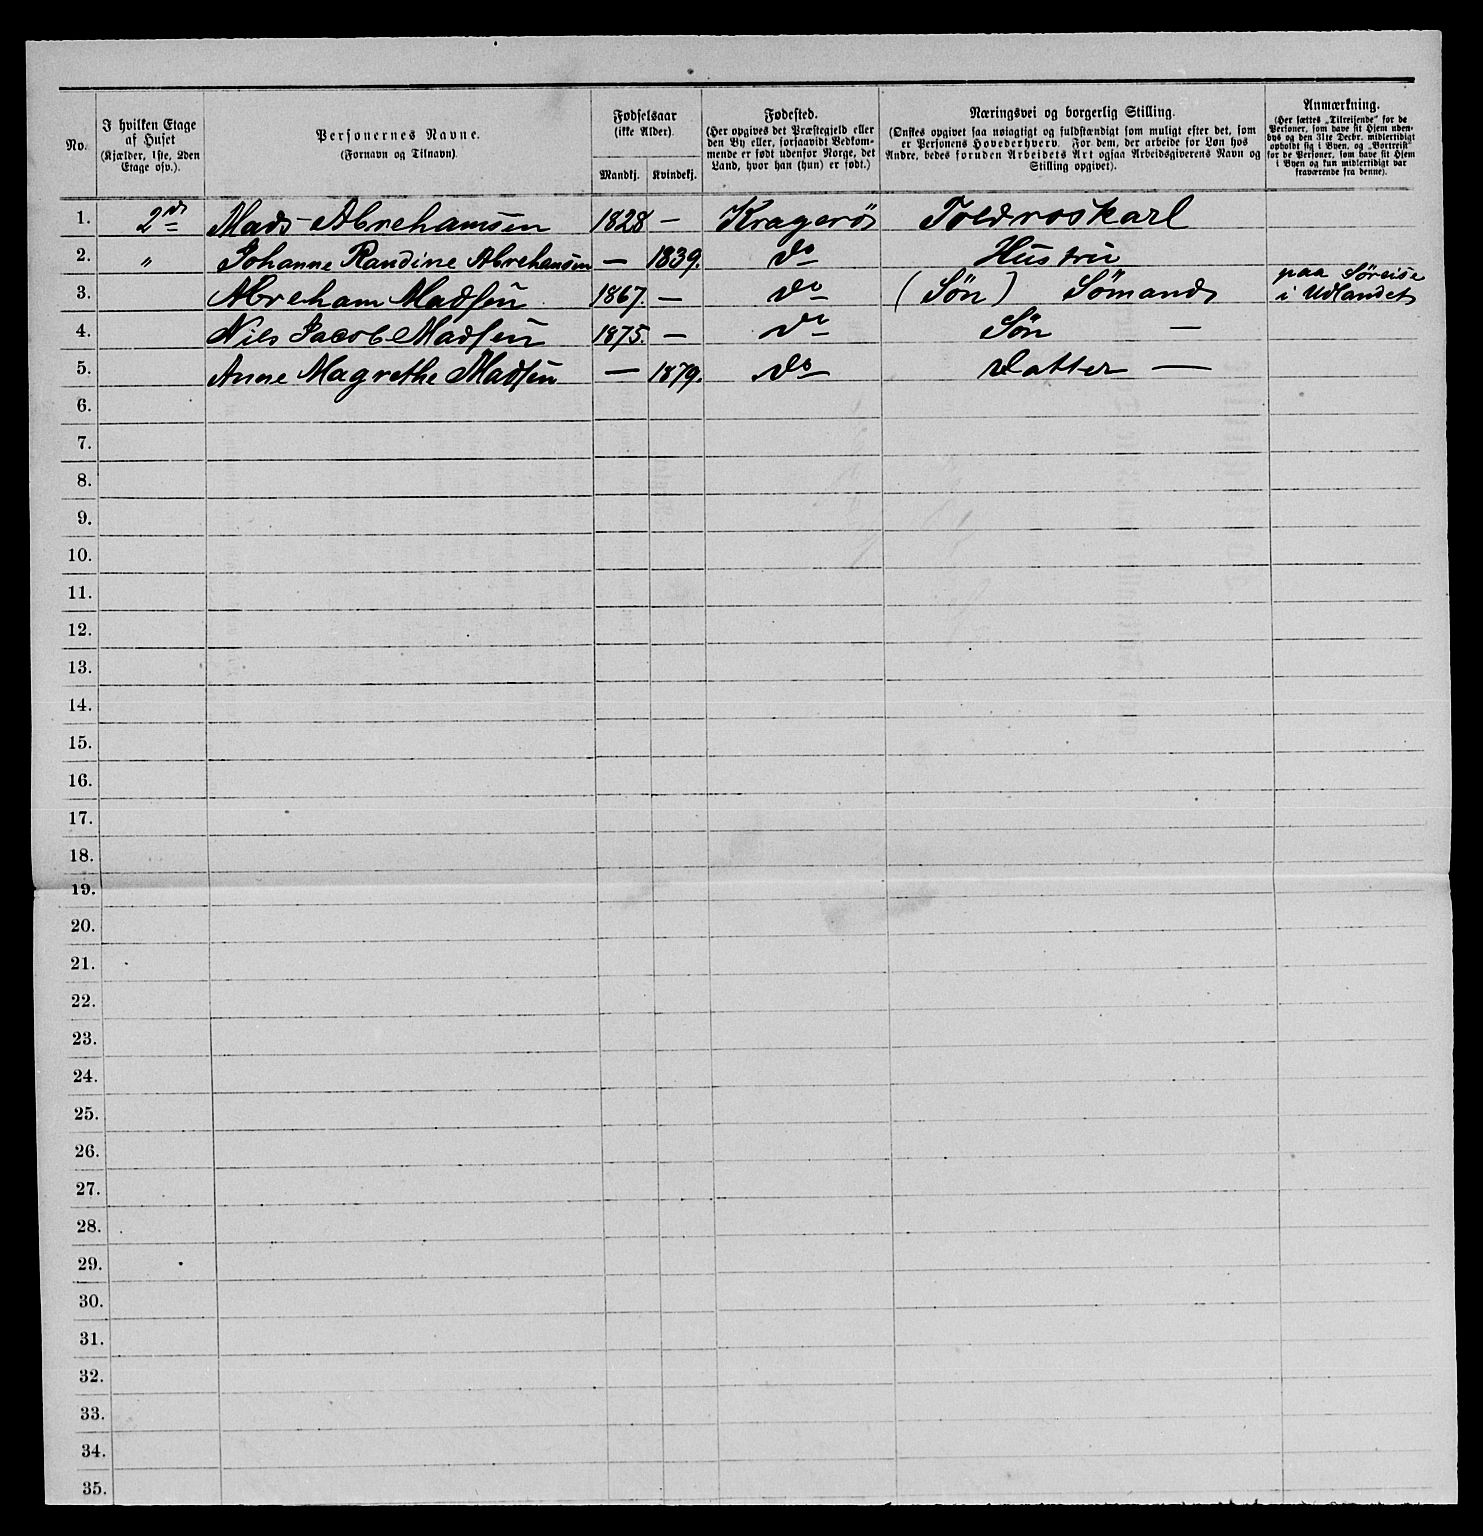 No.
I hvilken Etage
af Huset
(Kjælder, 1ste, 2den
Etage osv.).
Personernes Navne.
(Fornavn og Tilnavn).
Fødselsaar
(ikke Alder).
Mandkj. Kvindekj.
Fødested.
(Her opgives det Præstegjeld eller
den By eller, forsaavidt Vedkom-
mende er født udenfor Norge, det
Land, hvor han (hun) er født.)
Næringsvei og borgerlig Stilling.
(Ønskes opgivet saa nøiagtigt og fuldstændigt som muligt efter det, som
er Personens Hovederhverv. For dem, der arbeide for Løn hos
Andre, bedes foruden Arbeidets Art ogsaa Arbeidsgiverens Navn og
Stilling opgivet).
Anmærkning.
(Her sættes „Tilreisende“ for de
Personer, som have sit Hjem uden-
bys og den 31te Decbr. midlertidigt
opholdt sig i Byen, og „Bortreist“
for de Personer, som have sit Hjem
i Byen og kun midlertidigt var
fraværende fra denne).
1. 2den Mads Abrehamsen 1828 — Kragerös Toldroskarl
2. „ Johanne Randine Abrehamsen — 1839. do Hustru
3. Abreham Madsen 1867. — do (Søn) Sømand paa Søreise
i Udlandet
4. Nils Jacob Madsen 1875. — do Søn —
5. Anne Magrethe Madsen — 1879. do Datter —
6.
7.
8.
9.
10.
11.
12.
13.
14.
15.
16.
17.
18.
19.
20.
21.
22.
23.
24.
25.
26.
27.
28.
29.
30.
31.
32.
33.
34.
35.